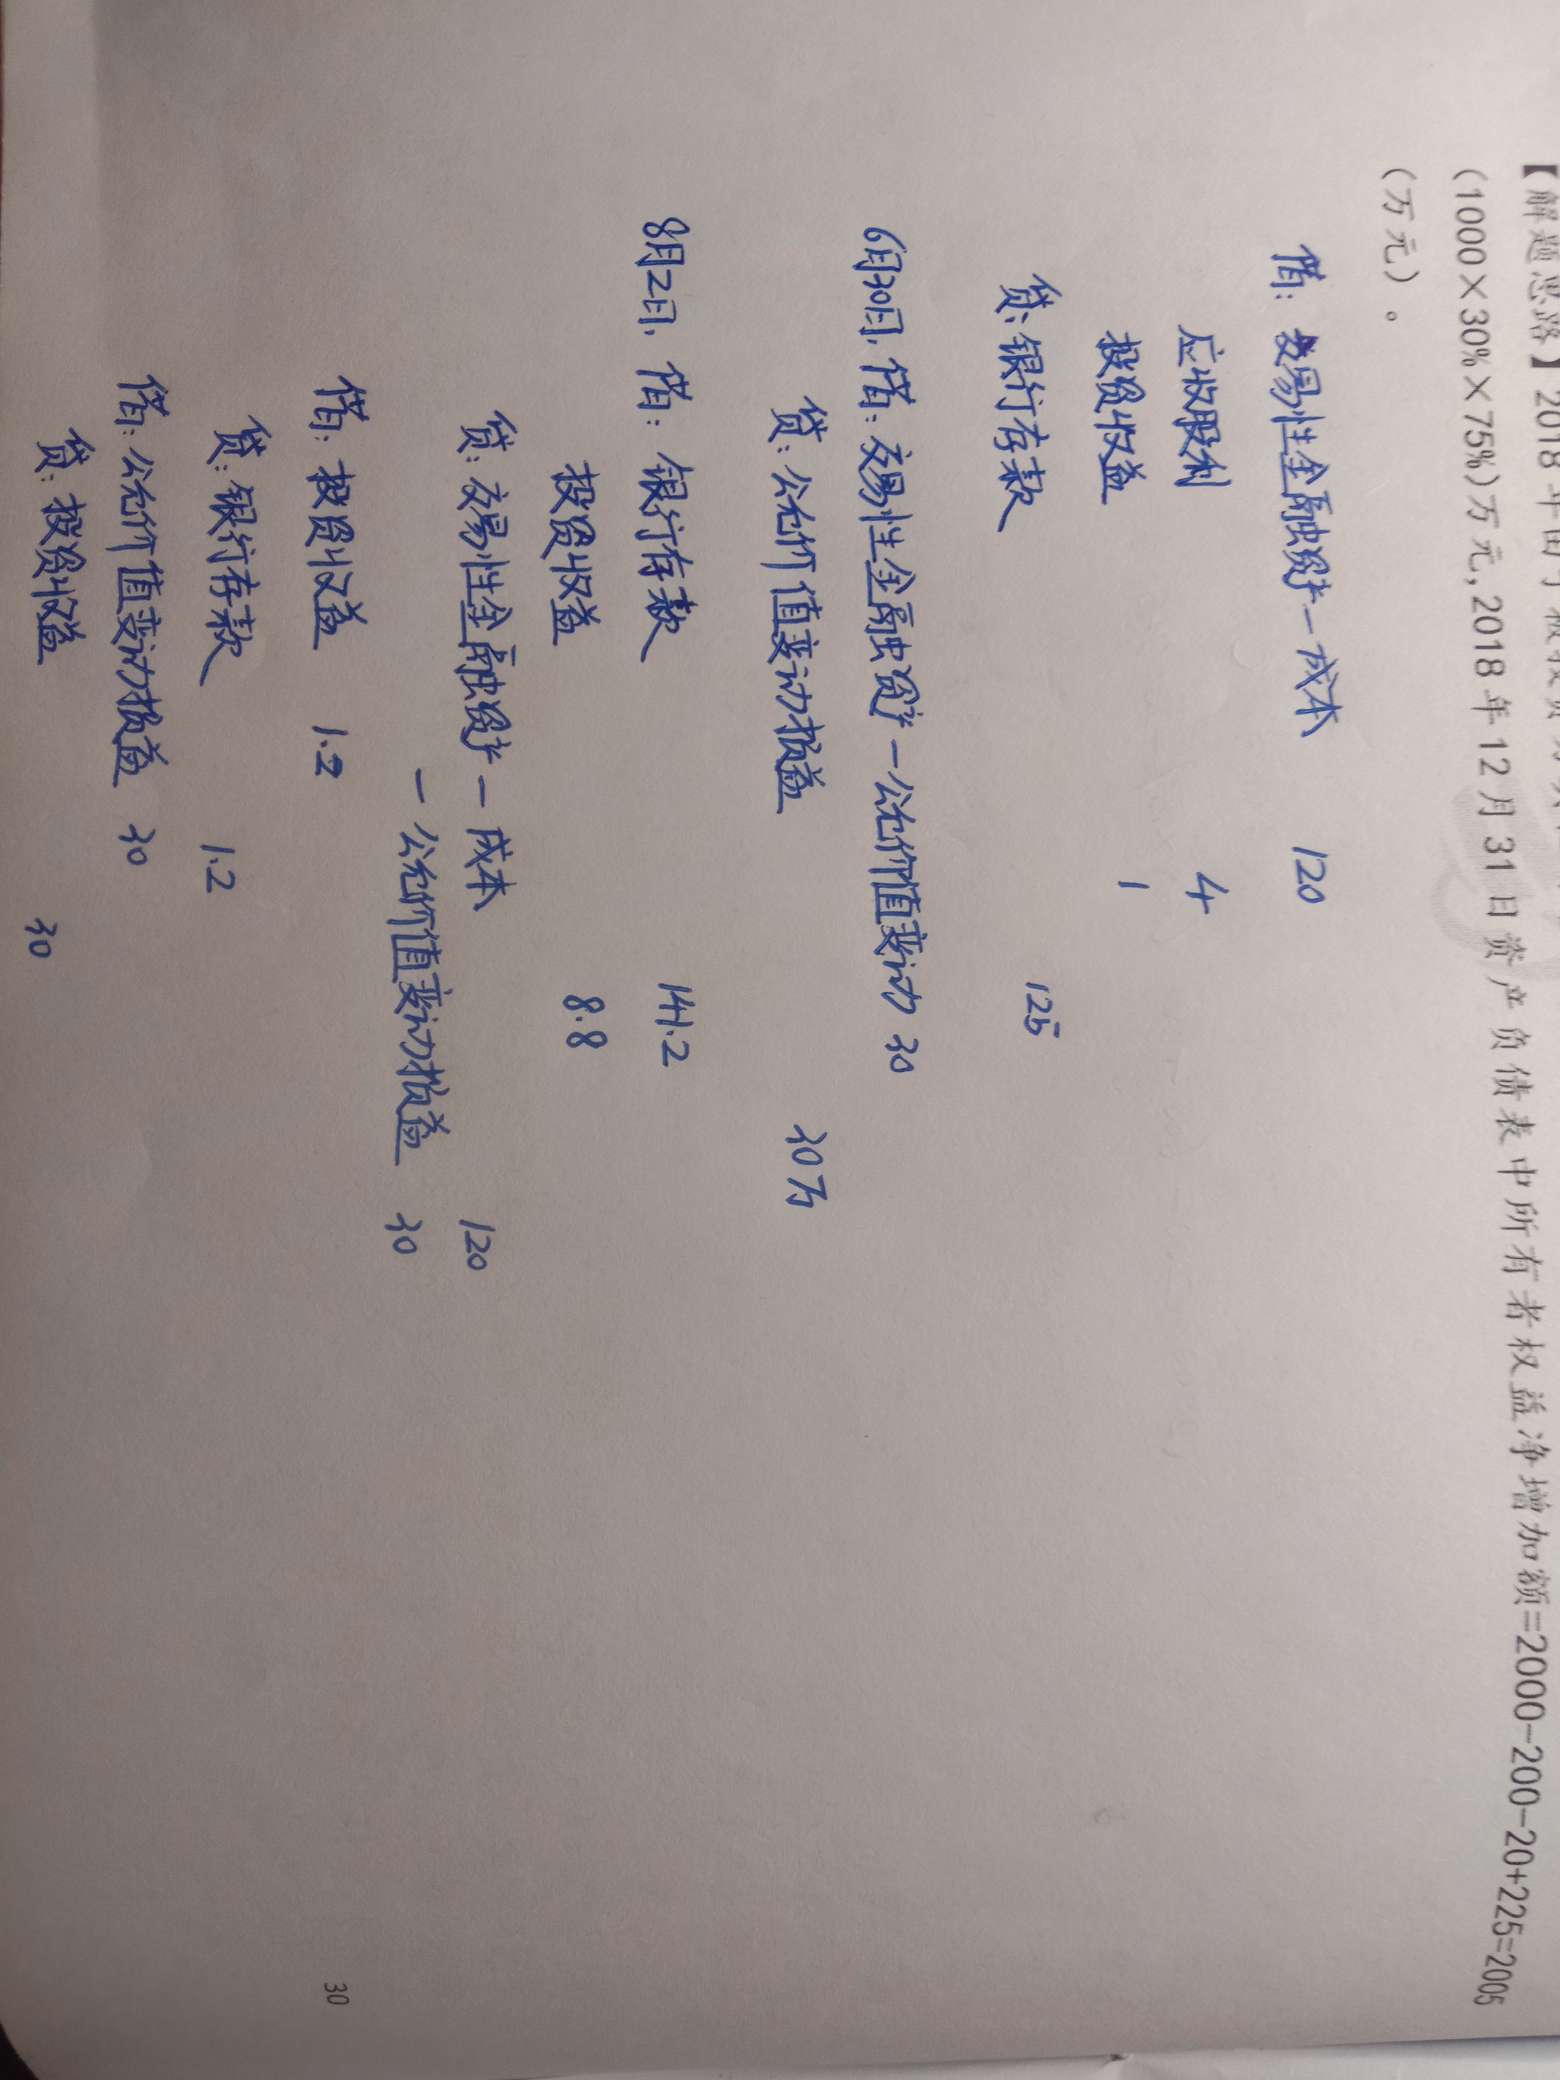 【解题思路】2018年由于被投资
(1000×30%×75%)万元,2018年12月31日资产负债表中所有者权益净增加额=2000-200-20+225=2005
(万元)。
借：交易性金融资产—成本 120
应收股利 4
投资收益 1
贷：银行存款 125
6月30日，借：交易性金融资产—公允价值变动 30
贷：公允价值变动损益 30万
8月2日，借：银行存款 141.2
投资收益 8.8
贷：交易性金融资产—成本 120
—公允价值变动损益 30
借：投资收益 1.2
贷：银行存款 1.2
借：公允价值变动损益 30
贷：投资收益 30
30